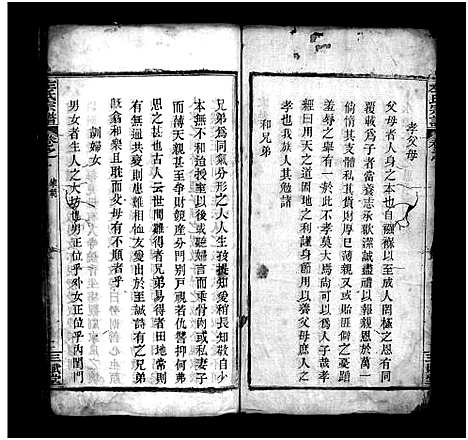 孝父母
父母者人身之本也自
以至水火之恩有同
覆載為子者當養志承歡深誠盡禮以報親恩於萬一
倘惰其支體私其貨財厚已薄親又或貽傷之憂蹈
羞辱之舉有一於此不孝莫大焉尚可以為人哉孝
經曰用天之道因地之利謹身節用以養父母庶人之
孝也我族人其勉諸
和兄弟
兄弟為同氣分形之人人生孩提知愛稍長知敬自少
本無不和迨授室以後或聽婦言而乖骨肉或私妻子
而薄天親甚至爭財競產分門別戶視若仇讐抑何弗
思之甚也古云世間難得者兄弟易得者田地常則
有通共變則患難相恤友愛出於至誠詩有之兄弟
既翕和樂且耽而父母有不順者乎
訓婦女
男女者生人之大坊也男正位乎外女正位乎內閨門
三
堂